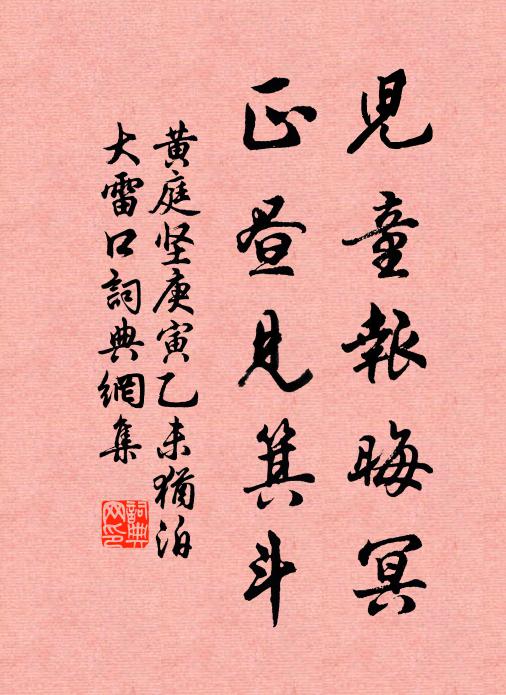 児童報晦冥
正昼見箕斗
黄庭坚庚寅乙未猶泊
大雷口詞典網集
詞典
网印